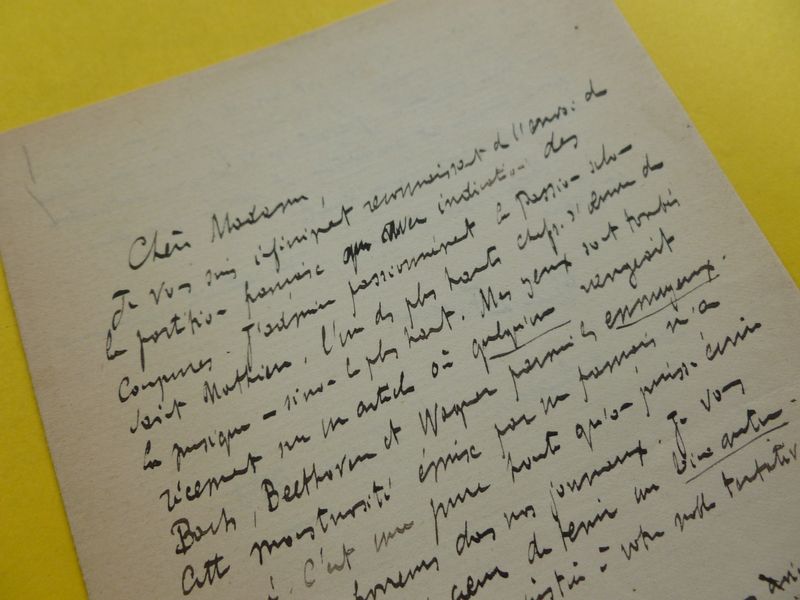 Chère Madame,
Je vous suis infiniment reconnaissant de l'envoi de
la partition française avec indication des
coupures. J'admire passionnément la Passion selon
saint Mathieu, l'un des plus hauts chefs-d'œuvre de
la musique – sinon le plus haut. Mes yeux sont tombés
récemment sur un article où quelqu'un rangeait
Bach, Beethoven et Wagner parmi les ennuyeux.
Cette monstruosité émise par un français m'a
. C'est une pure honte qu'on puisse écrire
dans nos journaux. Je vous
de tenir un
à votre noble tentative